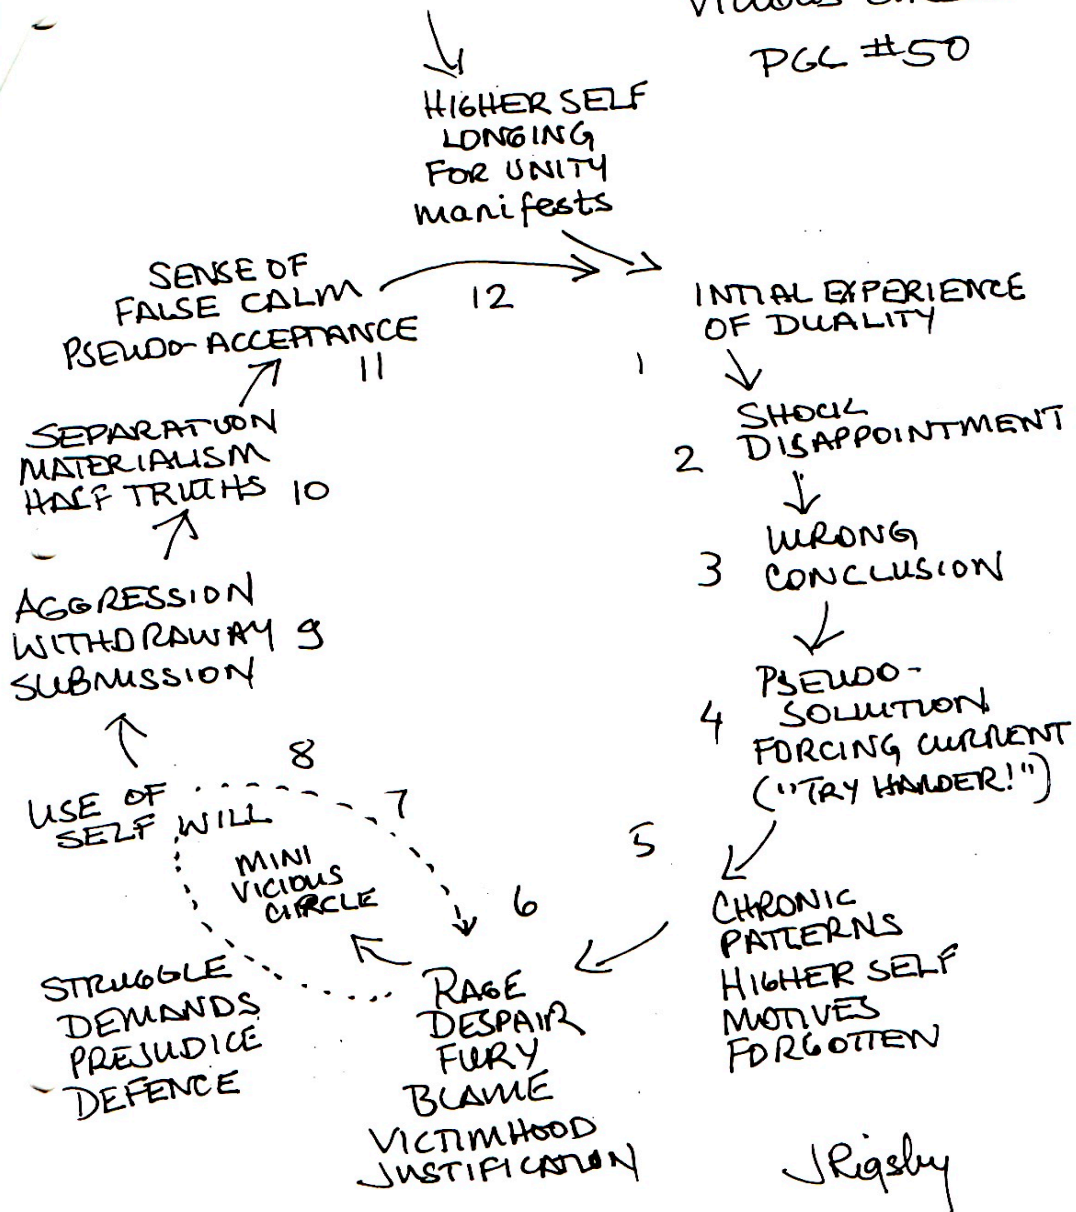 PGL #50
HIGHER SELF
LONGING
FOR UNITY
manifests
SENSE OF
FALSE CALM
PSEUDO-ACCEPTANCE
12
11
INTIAL EXPERIENCE
OF DUALITY
1
SHOCK
DISAPPOINTMENT
2
WRONG
CONCLUSION
3
PSEUDO-
SOLUTION
FORCING CURRENT
("TRY HARDER!")
4
5
CHRONIC
PATTERNS
HIGHER SELF
MOTIVES
FORGOTTEN
6
RAGE
DESPAIR
FURY
BLAME
VICTIMHOOD
JUSTIFICATION
7
8
MINI
VICIOUS
CIRCLE
STRUGGLE
DEMANDS
PREJUDICE
DEFENCE
USE OF
SELF WILL
AGGRESSION
WITHDRAWAY 9
SUBMISSION
SEPARATION
MATERIALISM
HALF TRUTHS 10
JRigsby